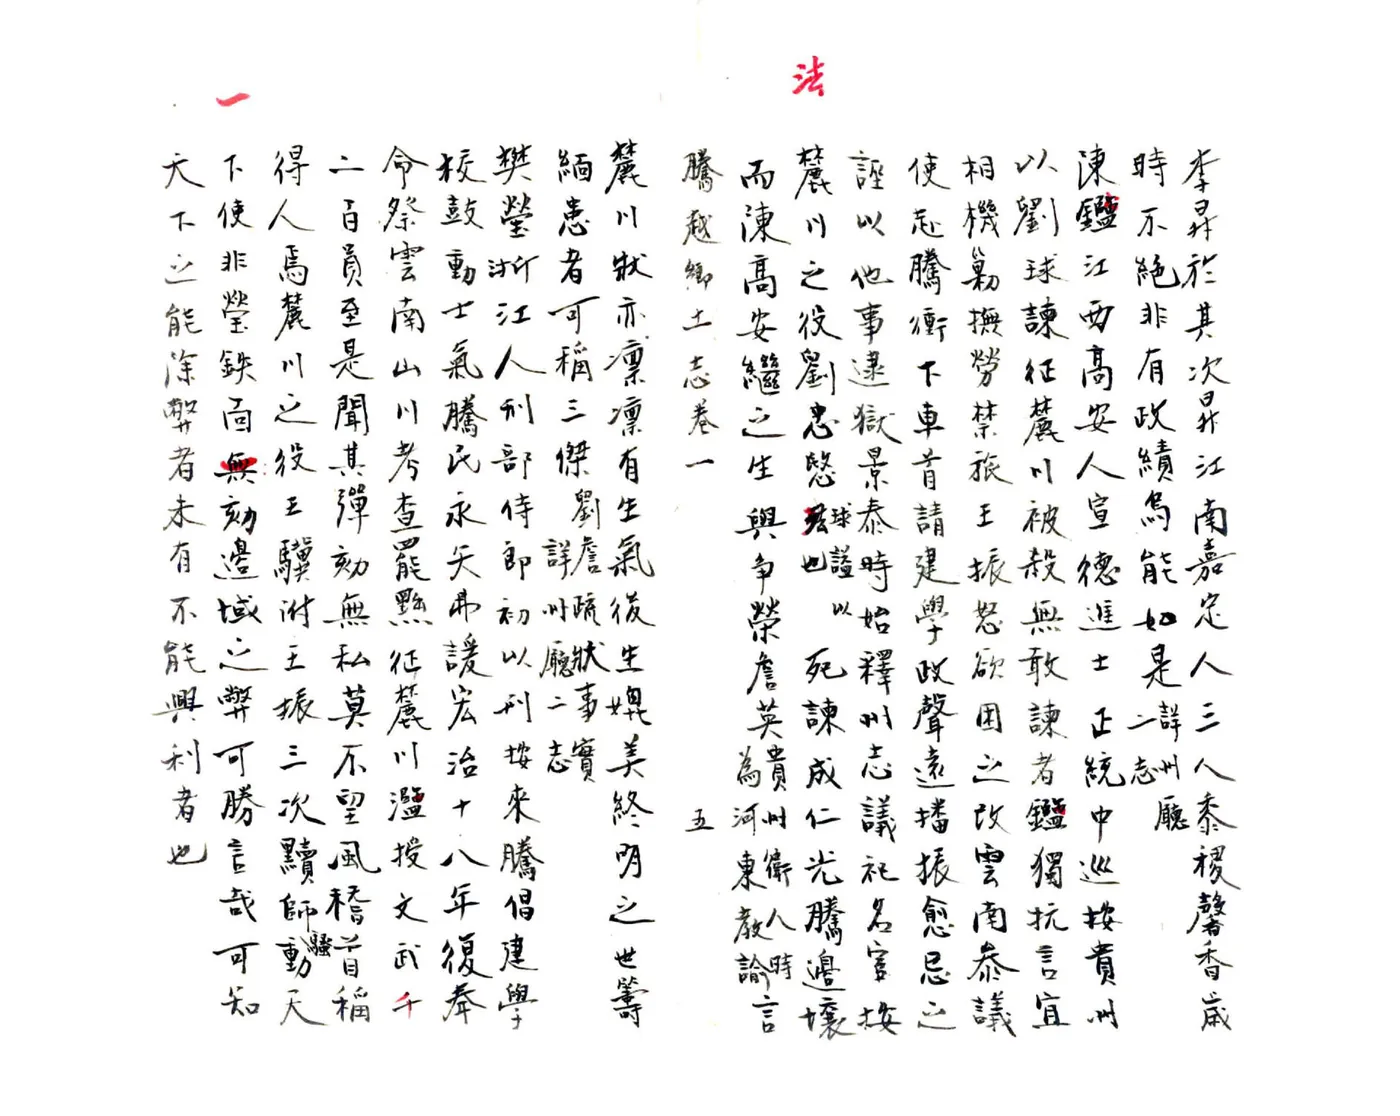 法
李昇於其次昇江南嘉定人三人黍稷馨香歲
時不絕非有政績烏能如是詳州廳二志
陳鑑江西高安人宣德進士正統中巡按貴州
以劉球諫征麓川被殺無敢諫者鑑獨抗言宜
相機勦撫勞禁旅王振怒欲困之改雲南叅議
使赴騰衝下車首請建學政聲遠播振愈忌之
誣以他事逮獄景泰時始釋州志議祀名宦按
麓川之役劉忠愍球謚也以死諫成仁光騰邊壤
而陳高安繼之生與争榮詹英貴州衛人時為河東教諭言
騰越鄉土志卷一 五
一
麓川狀亦凛凛有生氣後生媲美終明之世籌
緬患者可稱三傑劉詹疏狀事實詳州廳二志
樊瑩浙江人刑部侍郎初以刑按來騰倡建學
校鼓動士氣騰民永矢弗諼宏治十八年復奉
命祭雲南山川考查罷黜征麓川濫授文武千
二百員至是聞其彈劾無私莫不望風稽首稱
得人焉麓川之役王驥附王振三次黷師騷動天
下使非瑩鉄面無刻邊域之弊可勝言哉可知
天下之能除弊者未有不能興利者也